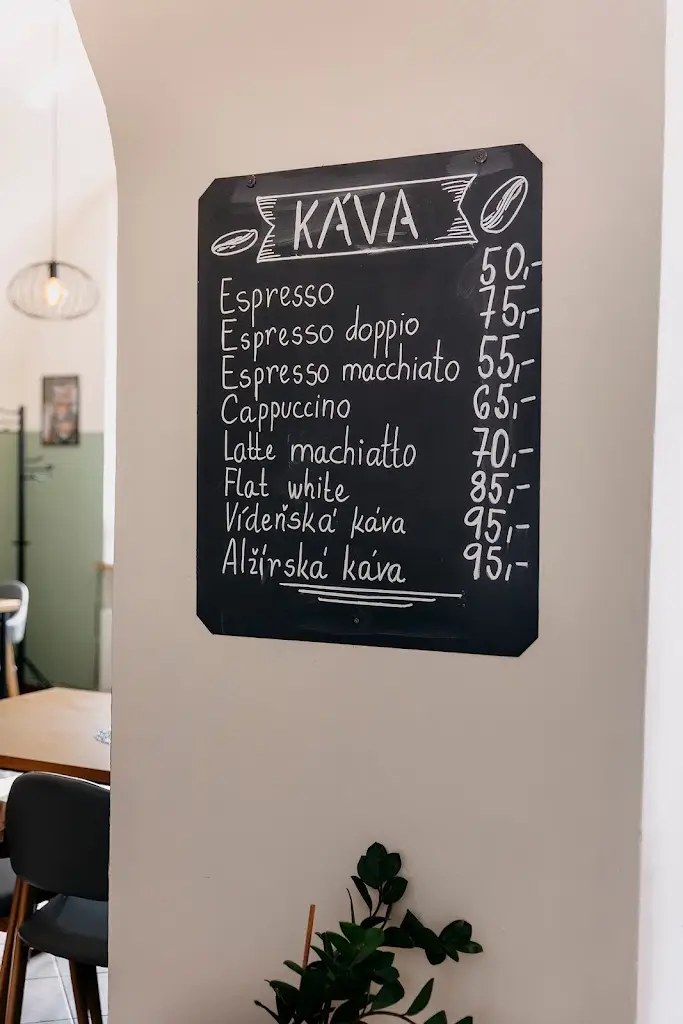 KÁVA
Espresso 50,-
Espresso doppio 75,-
Espresso macchiato 55,-
Cappuccino 65,-
Latte machiatto 70,-
Flat white 85,-
Vídeňská káva 95,-
Alžírská káva 95,-